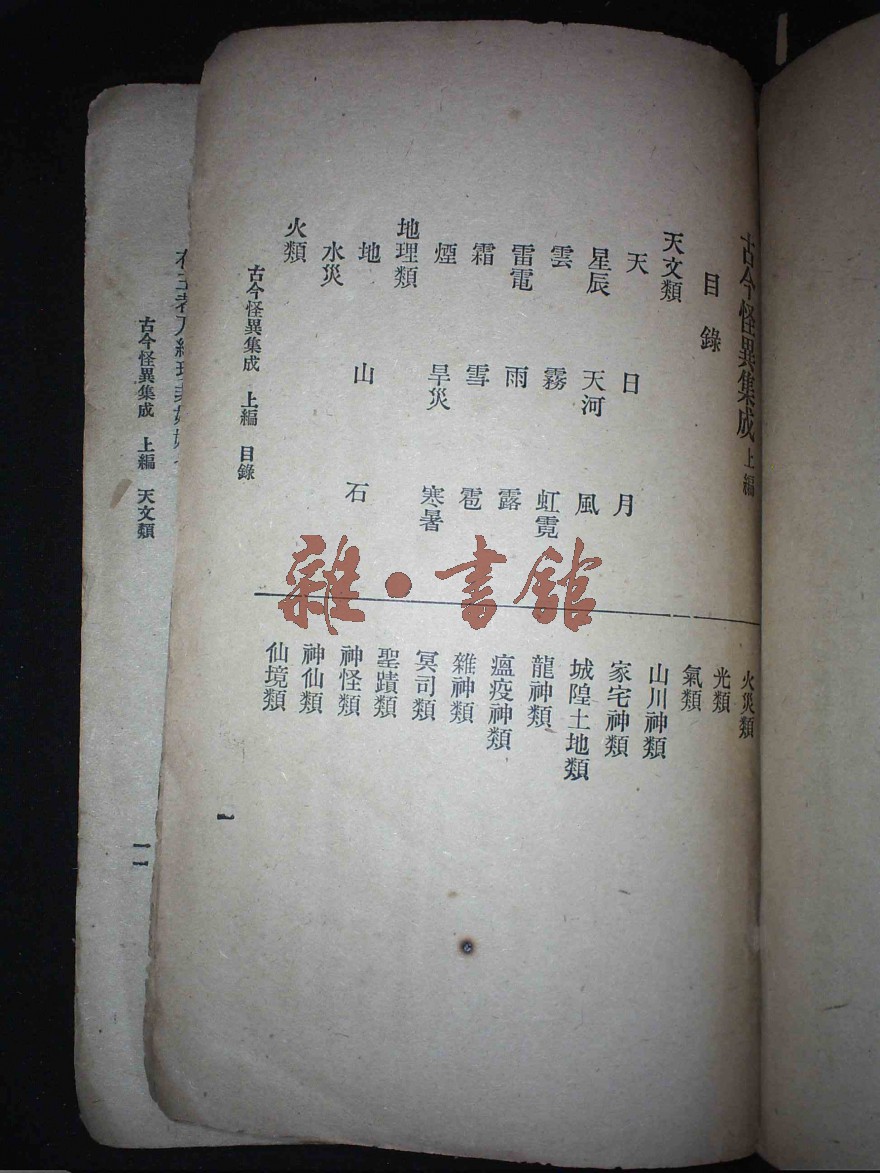 古今怪異集成 上編
目錄
天文類
天 日 月
星辰 天河 風
雲 霧 虹霓
雷電 雨 露
霜 雪 雹
煙 旱災 寒暑
地理類
地 山 石
水災
火類
火災類
光類
氣類
山川神類
家宅神類
城隍土地類
龍神類
瘟疫神類
雜神類
冥司類
聖蹟類
神怪類
神仙類
仙境類
古今怪異集成 上編 目錄
一
古今怪異集成 上編 天文類
一一
雜·書館